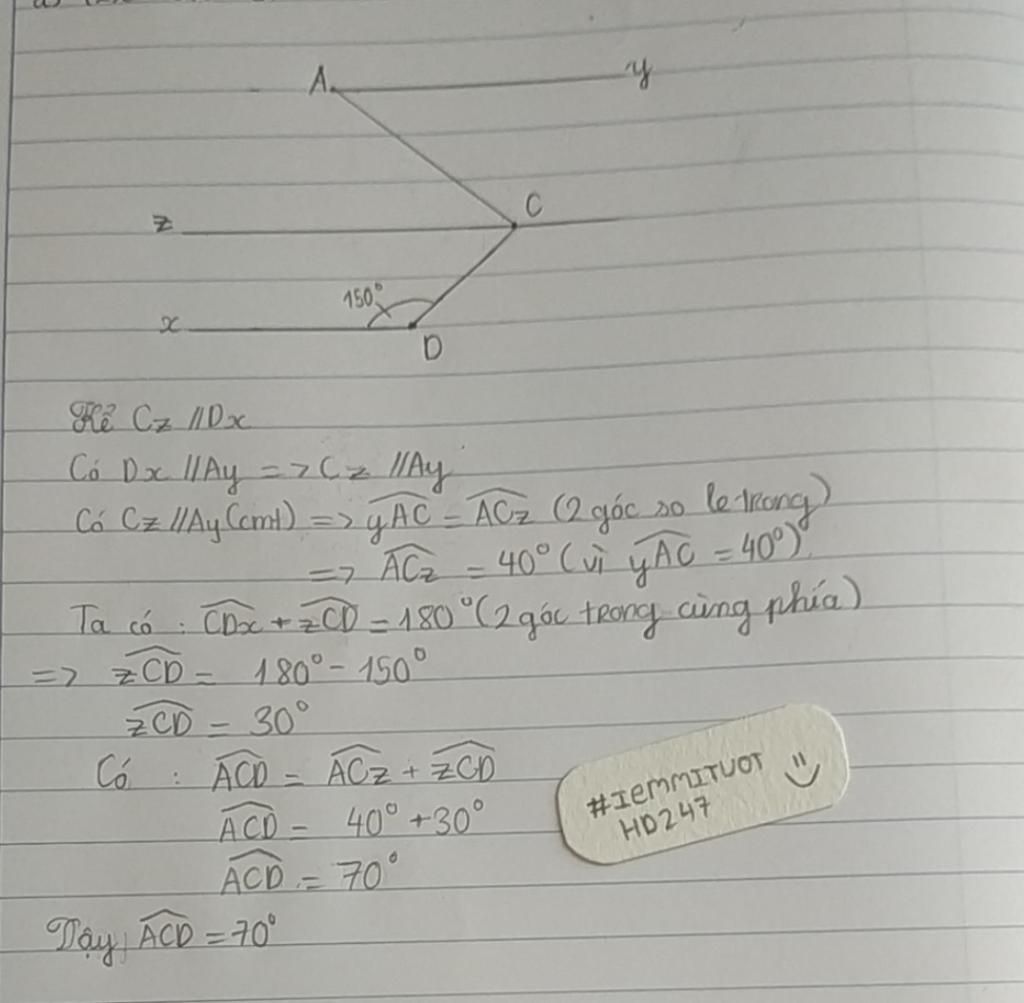 A
y
z
C
150°
x
D
Kẻ Cz //Dx
Có Dx //Ay => Cz //Ay
Có Cz //Ay (cmt) => yAC = ACz (2 góc so le trong)
=> ACz = 40° (vì yAC = 40°)
Ta có : CDx + zCD = 180° (2 góc trong cùng phía)
=> zCD = 180° - 150°
zCD = 30°
Có : ACD = ACz + zCD
ACD = 40° + 30°
ACD = 70°
Vậy, ACD = 70°
#IEMMITUOT
HD247